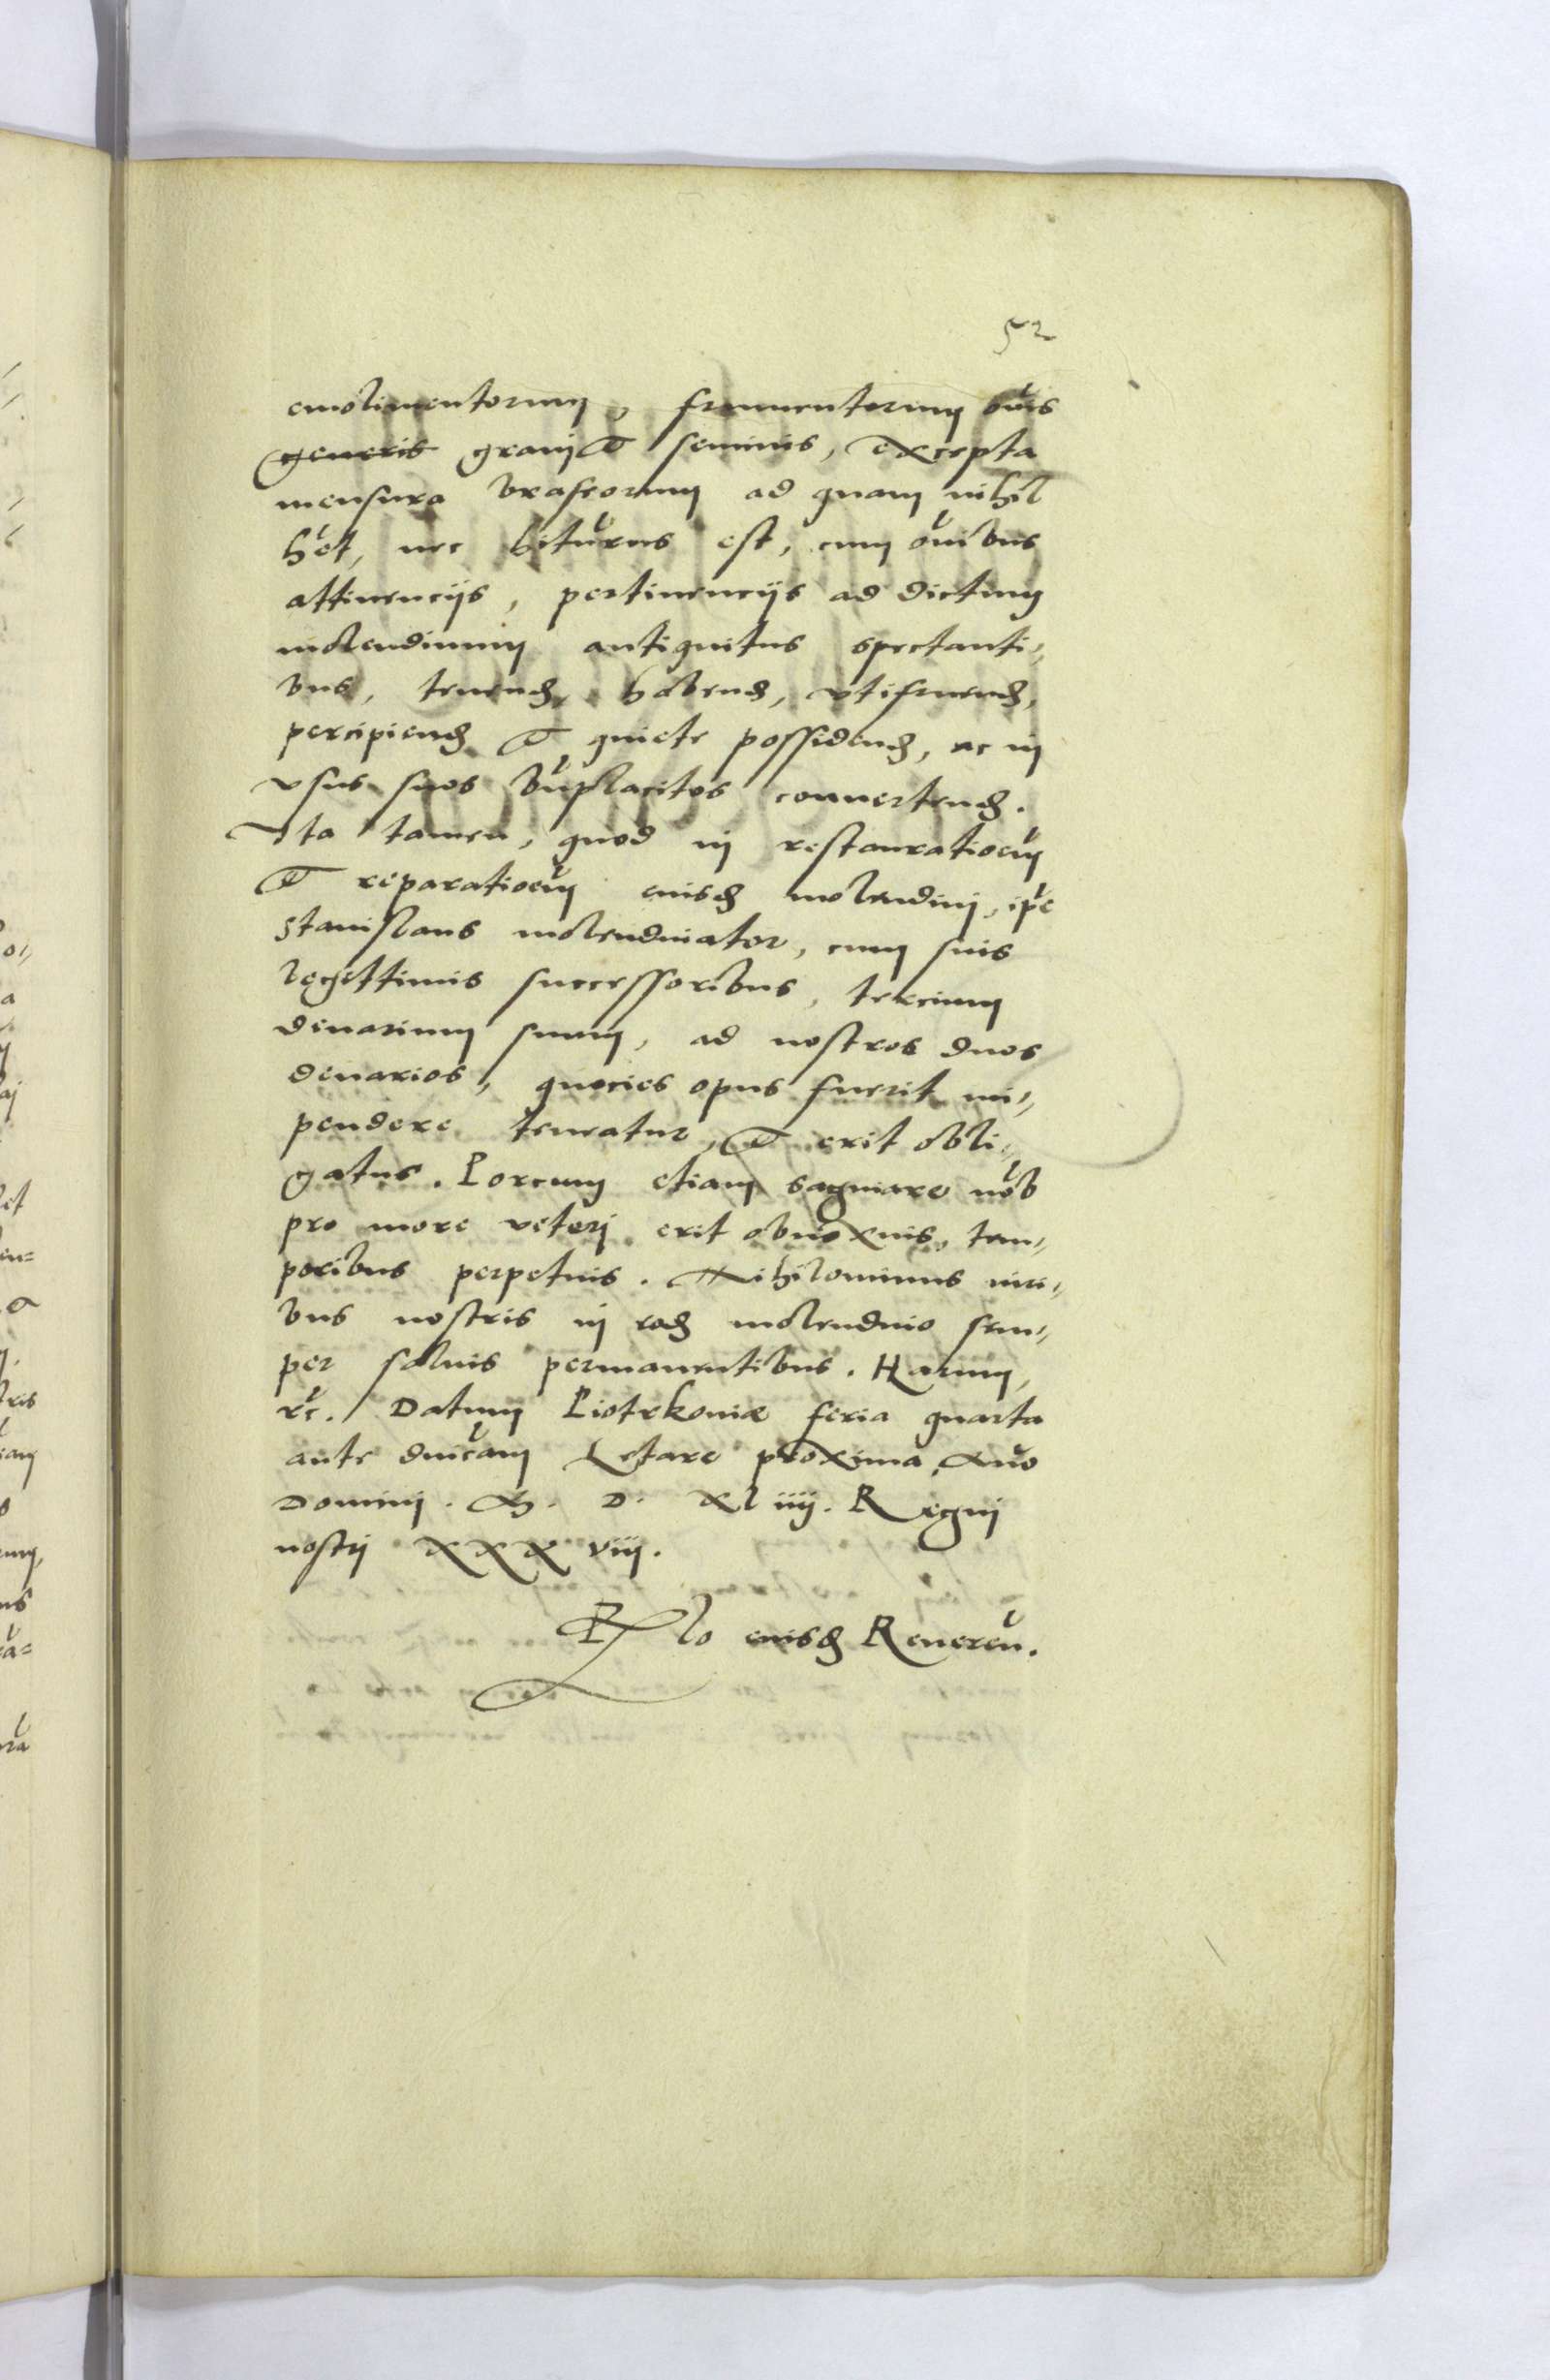 52
emolimentorum, frumentorum ois
generis granj & seminis, excepta
mensura braseorum ad quam nihil
het, nec hiturus est, cum oibus
attinencijs, pertinencijs ad dictum
molendinum antiquitus spectanti,,
bus, tenend, habend, vtifruend,
percipiend & quiete possidend, ac in
vsus suos bnplacitos conuertend.
Ita tamen, quod in restauratioem
& reparatioem euisd molendinj, ipe
Stanislaus molendinator, cum suis
legittimis successoribus, tercium
denarium suum, ad nostros duos
denarios, quocies opus fuerit im,,
pendere teneatur, & erit obli,,
gatus. Porcum etiam saginare nob
pro more veterj erit obnoxius, tem,,
poribus perpetuis. Nihilominus iuri,,
bus nostris in eod molendino sem,,
per saluis permanentibus. Harum,
rc. Datum Piotrkoniæ feria quarta
ante dnicam Letare proxima, Anno
Dominj. M. D. XLiiij. Regnj
nostrj XXX viij.
Rlo euisd Reueren.